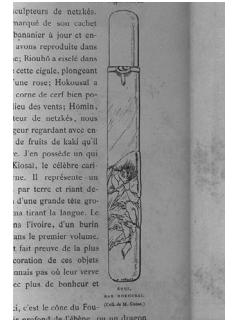 sculpteurs de netzkés.
marqué de son cachet
bananier à jour et en-
avons reproduite dans
se; Riouhô a ciselé dans
cette cigale, plongeant
d'une rose; Hokousaï a
corne de cerf bien po-
dieu des vents; Hômin,
teur de netzkés, nous
geur regardant avec en-
de fruits de kaki qu'il
re. J'en possède un qui
Kiosaï, le célèbre cari-
rne. Il représente un
par terre et riant de-
d'une grande tête gro-
ma tirant la langue. Le
ns l'ivoire, d'un burin
ans le premier volume.
t fait preuve de la plus
coration de ces objets
nnais pas où leur verve
ec plus de bonheur et
ÉTUI,
PAR HOKOUSAÏ.
(Coll. de M. Gonse.)
ci, c'est le cône du Fou-
is profond de l'ébène, ou un dragon